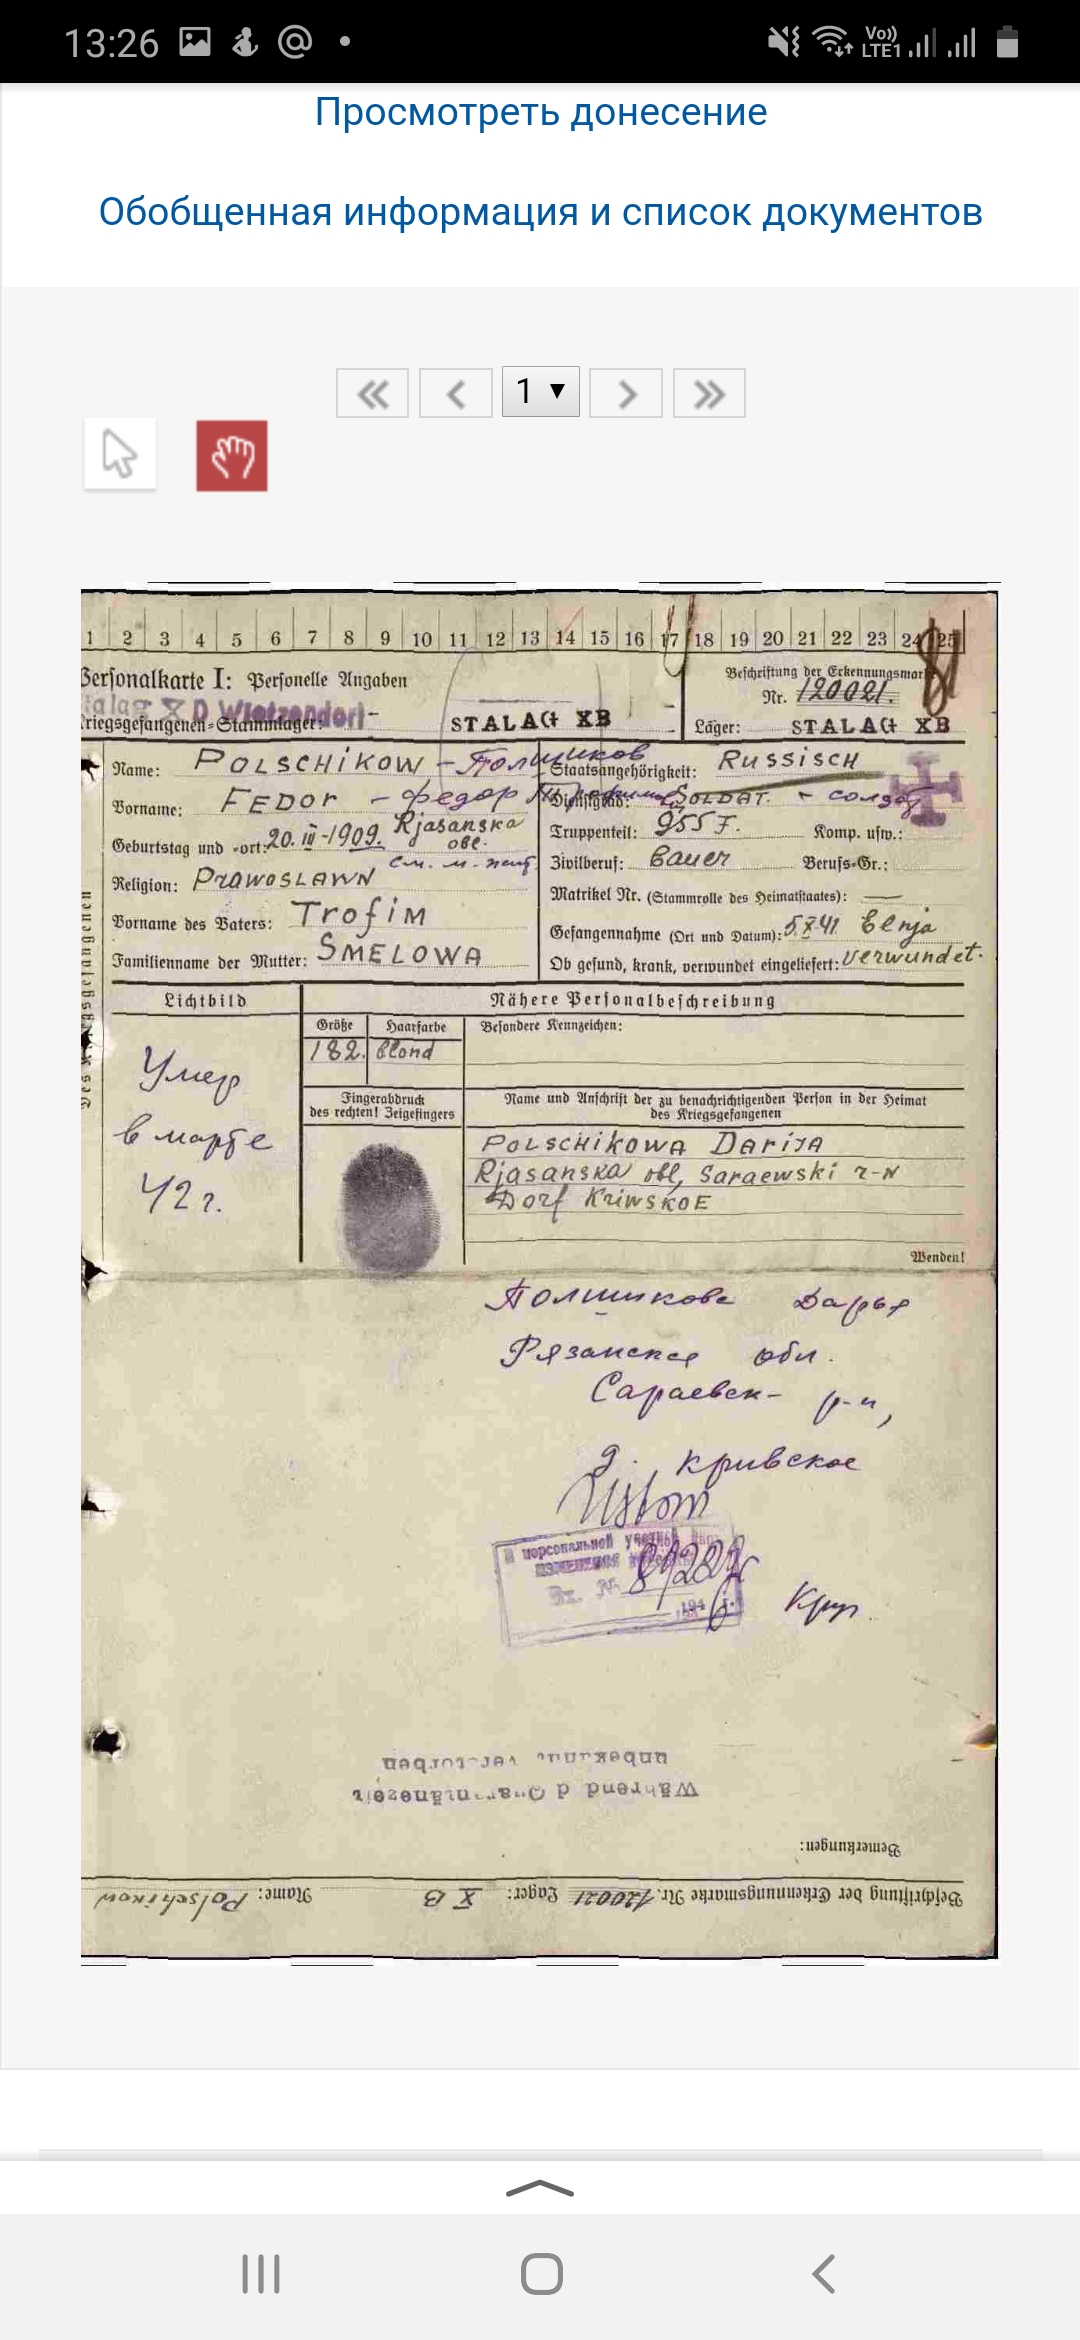 13:26
Vo)) LTE1
Просмотреть донесение
Обобщенная информация и список документов
1
1 2 3 4 5 6 7 8 9 10 11 12 13 14 15 16 17 18 19 20 21 22 23 24 25
Personalkarte I: Personelle Angaben
Beschriftung der Erkennungsmarke
Nr. 120021.
X D Wietzendorf
Kriegsgefangenen-Stammlager: STALAG XB
Lager: STALAG XB
Name: POLSCHIKOW - Полшиков
Staatsangehörigkeit: RUSSISCH
Vorname: FEDOR - Федор Трофимов
Dienstgrad: SOLDAT. - солдат
Geburtstag und -ort: 20. III-1909. Rjasanska obl.
Truppenteil: 955 J. Komp. usw.:
см. м. жит.
Zivilberuf: Bauer Berufs-Gr.:
Religion: PRAWOSLAWN
Matrikel Nr. (Stammrolle des Heimatstaates): —
Vorname des Vaters: TROFIM
Gefangennahme (Ort und Datum): 5.X.41. Elnja
Familienname der Mutter: SMELOWA
Ob gesund, krank, verwundet eingeliefert: verwundet.
Des Kriegsgefangenen
Lichtbild
Nähere Personalbeschreibung
Größe
Haarfarbe
Besondere Kennzeichen:
182. blond
Умер
в марте
42 г.
Fingerabdruck
des rechten! Zeigefingers
Name und Anschrift der zu benachrichtigenden Person in der Heimat
des Kriegsgefangenen
POLSCHIKOWA DARIJA
Rjasanska obl, Saraewski r-N
Dorf KRIWSKOE
Wenden!
Полшикова Дарья
Рязанская обл.
Сараевск- р-н,
д. Кривское
П персональной
Вх. №
194 г.
Während d Quarantänezeit
unbekannt verstorben
Bemerkungen:
Beschriftung der Erkennungsmarke Nr. 120021 Lager: X B Name: Polschikow